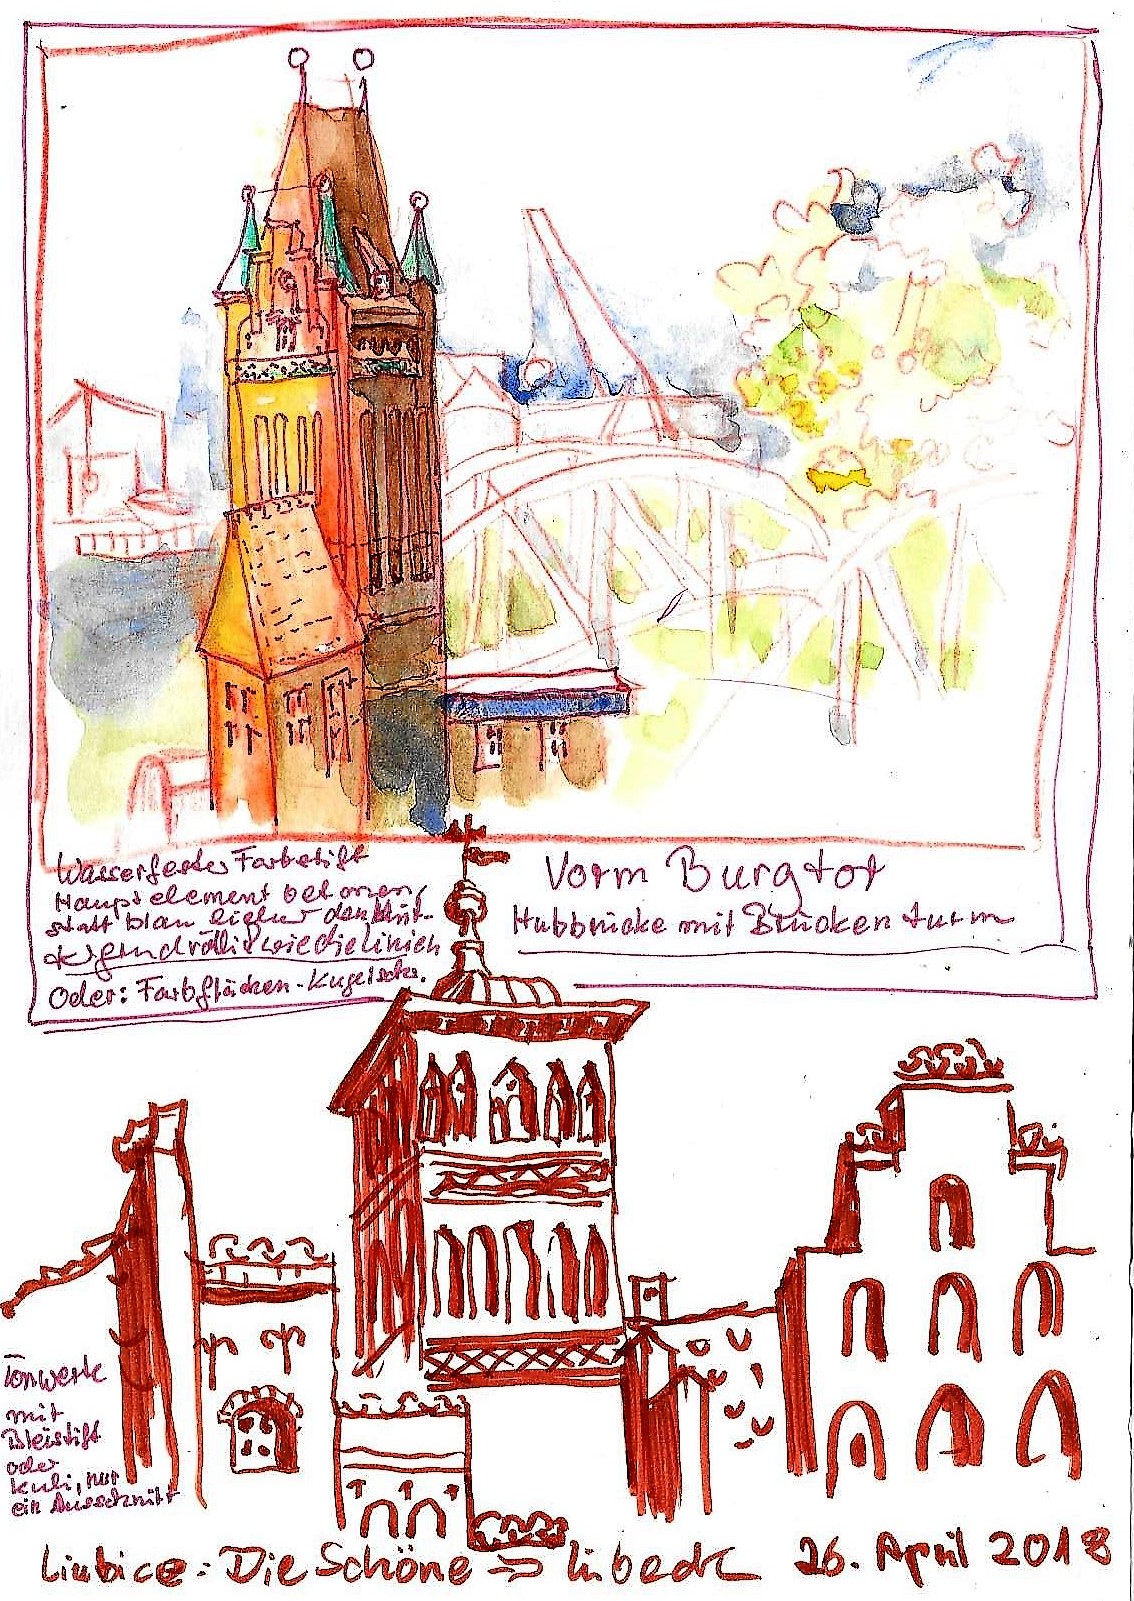 Wasserfester Farbstift
Hauptelement betonen,
statt blau
wie die Linien
Oder: Farbflächen - Kugelschr.
Vorm Burgtor
Hubbrücke mit Brückenturm
Tonwerte
mit
Bleistift
oder
Kuli, nur
ein Ausschnitt
Liubice: Die Schöne => Lübeck 26. April 2018